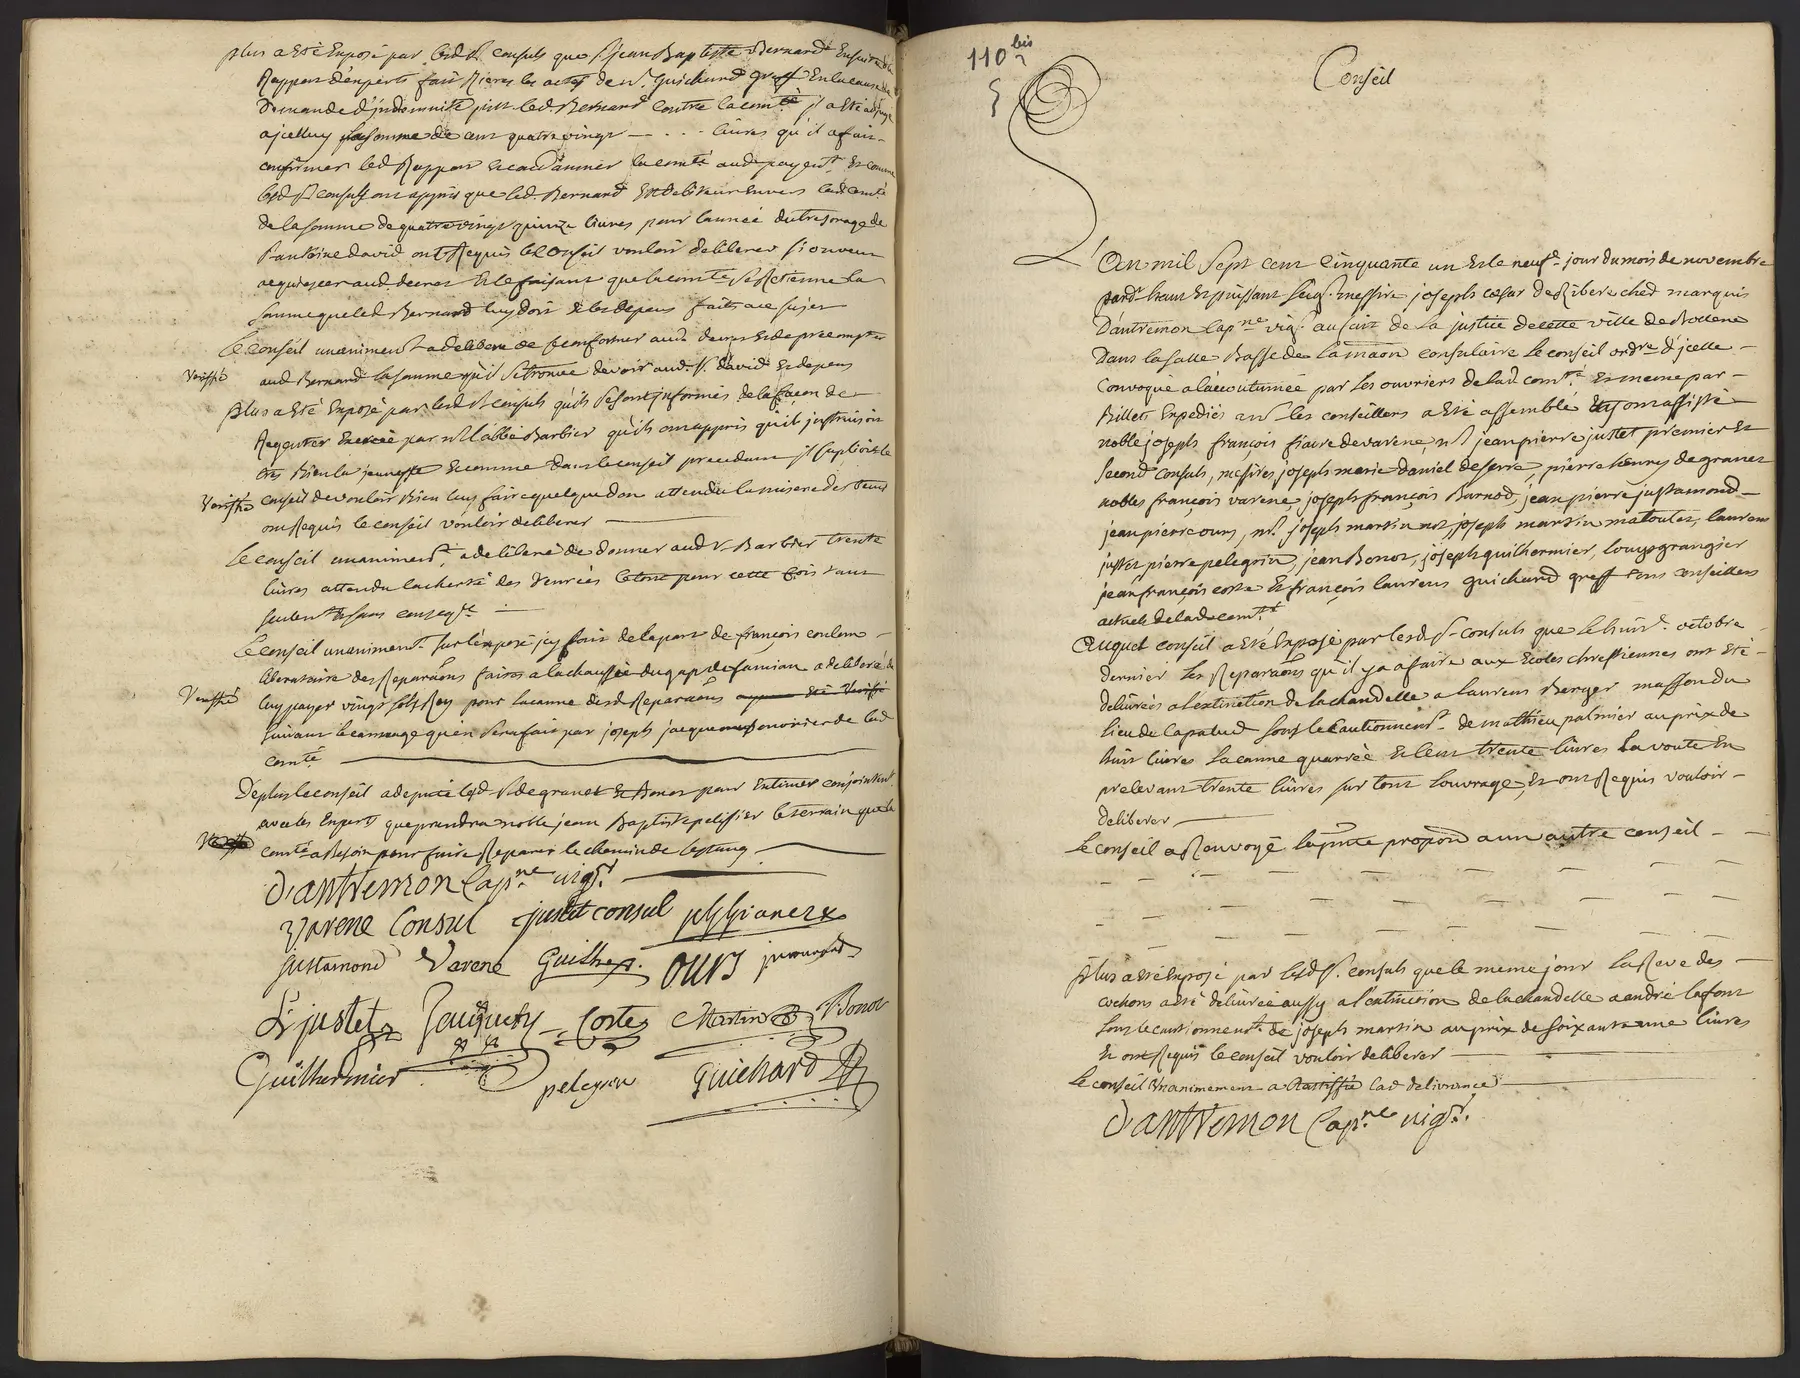 plus a Eté Exposé par lesd. Srs consuls que Sr jean Baptiste Bernard Ensuitte du
Rapport d'experts fait Rieres les actes de Mr. Guichard greff. En la cause de
Demande d'jndemnité pnt. led. Bernard contre la comté jl a eté adjugé
a jcelluy la somme de cent quatre vingt — . . - livres qu'il a fait
confirmer led Rapport et condamner la comté aud. payemt. Et comme
lesd Srs consuls ont appris que led. Bernard Est debiteur envers lad. comté
de la somme de quatre vingt quinze livres pour l'année du tresorage de
Sr antoine david ont Requis le Conseil vouloir deliberer si on veut
acquiescer aud. decret Et le faisant que la comté se Retienne la
somme que led Bernard luy doit Et les depens faits a ce sujet
Le conseil unanimemt. a deliberé de se conformer aud decret Et de precompter
Veriffié
aud Bernard la somme qu'il se trouve devoir aud. Sr. david Et depens
plus a Eté Exposé par lesd. Srs consuls qu'ils se sont jnformés de la façon de
Regenter Exercée par Mr l'abbé Barbier qu'ils ont appris qu'il jnstruisoit
tres Bien la jeunesse Et comme dans le conseil precedant jl suplioit le
Veriffié
conseil de vouloir Bien luy faire quelque don attendu la misere des tems
ont Requis le conseil vouloir deliberer —
Le conseil unanimemt. a deliberé de donner aud Sr Barbier trente
livres attendu la cherté des denrées le tout pour cette fois tant
seulemt. Et sans conseqce. —
Le conseil unanimemt. sur l'exposé jcy fait de la part de françois coulomb —
liberataire des Reparaons faites a la chaussée du gap de famian a deliberé de
Veriffié
luy payer vingt sols Roy pour la canne desd. Reparaons ayant été veriffié
suivant le cannage qu'en sera fait par joseph jacquemet fonovrier de lad
comté
De plus le conseil a deputé lesd. Srs de granet Et Bonot pour Estimer conjointemt.
avec les Experts que prendra noble jean Baptiste pelissier le terrain que la
Veriffié
comté a Besoin pour faire Reparer le chemin de lestang —
D'antremon Capne. vigr.
Varene Consul justet consul
justamond Varene Guilhe. OURS
Sr justet Coste Martin Bonot
Guilhermier pelegrin Guichard
110 bis
Conseil
L'an mil sept cent cinquante un Et le neufe. jour du mois de novembre
pardt. haut Et puissant seigr. messire joseph cœsar de Ribere ched marquis
D'antremon Capne vigr. au fait de la justice de cette ville de Bollene
Dans la salle Basse de la maon consulaire le conseil ordre. d'jcelle —
Convoqué a l'accoutumée par les ouvriers de lad. comté. Et meme par —
Billets Expediés a Mrs les conseillers a eté assemblé Auquel ont assisté
noble joseph françois fiacre de varene, Mr jean pierre justet premier Et
second consuls, messires joseph marie daniel de serre, pierre henry de granet
nobles françois varene, joseph françois Barnod, jean pierre justamond —
jean pierre ours, Mr. joseph martin not. joseph martin matoutes, laurens
justet, pierre pelegrin, jean Bonot, joseph guilhermier, louys grangier
jean françois coste Et françois laurens guichard greff tous conseillers
actuels de lad. comté
Auquel conseil a Eté Exposé par lesd Srs consuls que le huite. octobre
dernier les Reparaons qu'il y a a faire aux Ecoles chrestiennes ont Eté —
delivrées a l'extinction de la chandelle a laurens Berger masson du
lieu de lapalud sous le cautionnemt. de mathieu palmier au prix de
huit livres la canne quarrée Et cent trente livres la voute En
prelevant trente livres sur tout l'ouvrage, Et ont Requis vouloir —
deliberer —
Le conseil a Renvoyé la pnte propõon a un autre conseil —
plus a Eté Exposé par lesd. Srs. consuls que le meme jour la Reve des —
cochons a Eté delivrée aussy a l'extinction de la chandelle a andré lafont
sous le cautionnemt. de joseph martin au prix de soixante une livres
Et ont Requis le conseil vouloir deliberer —
Le conseil Unanimement a Rattiffié lad delivrance —
D'antremon Capne. vigr.